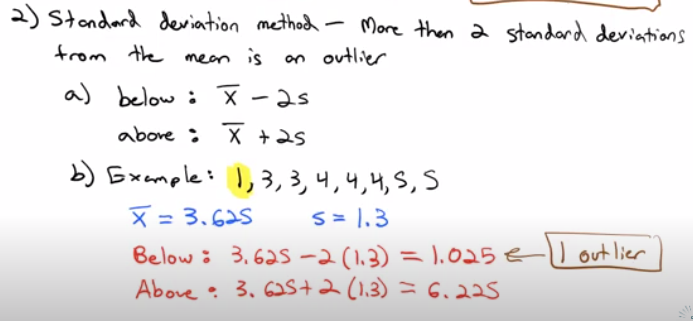 2) Standard deviation method — More then 2 standard deviations
from the mean is an outlier
a) below : x̄ - 2s
above : x̄ + 2s
b) Example : 1, 3, 3, 4, 4, 4, 5, 5
x̄ = 3.625 s = 1.3
Below : 3.625 - 2 (1.3) = 1.025 ← 1 outlier
Above : 3.625 + 2 (1.3) = 6.225